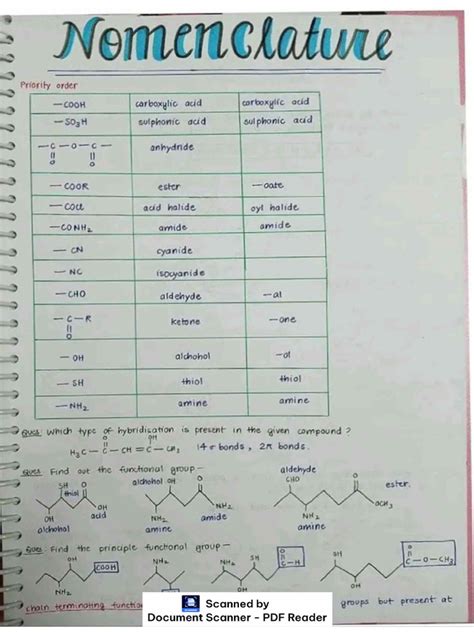 Nomenclature
Priority order
—COOH carboxylic acid carboxylic acid
—SO3H sulphonic acid sulphonic acid
—C—O—C— anhydride
O O
—COOR ester —oate
—COCl acid halide oyl halide
—CONH2 amide amide
—CN cyanide
—NC isocyanide
—CHO aldehyde —al
—C—R ketone —one
O
—OH alchohol —ol
—SH thiol thiol
—NH2 amine amine
Ques Which type of hybridisation is present in the given compound?
O OH
H3C—C—CH=C—CH3 14σ bonds, 2π bonds.
Ques Find out the functional group—
SH O alchohol OH O aldehyde CHO O ester.
thiol OH acid NH2 amide OCH3
OH NH2 NH2
alchohol amine amine
Ques Find the principle functional group—
OH NH2 NH2 SH O OH O
COOH C—H C—O—CH3
OH
chain terminating groups but present at
Scanned by
Document Scanner - PDF Reader